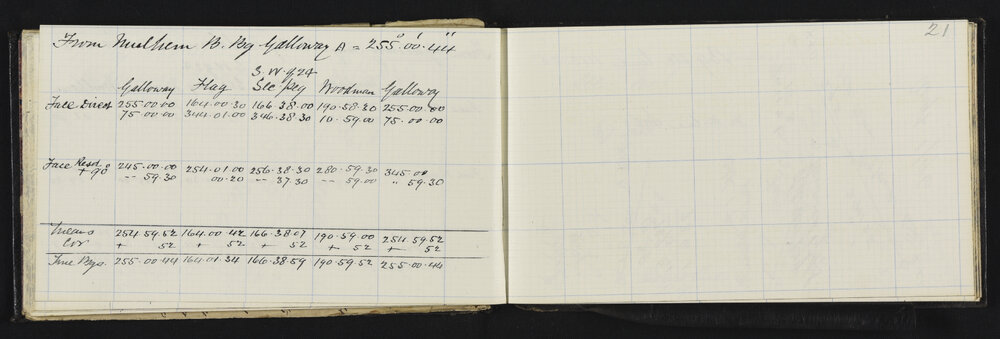 21
From Mulhem B. Bg Galloway A = 255° 00' 44"
S. W. of 24
Galloway Flag Sec peg Woodman Galloway
Face Direct 255.00.00 164.00.30 166.38.00 190.58.30 255.00.00
75.00.00 344.01.00 346.38.30 10.59.00 75.00.00
Face Resd + 90° 245.00.00 254.01.00 256.38.30 280.59.30 345.00
-- 59.30 00.20 -- 37.30 -- 59.00 " 59.30
Means 254.59.52 164.00.42 166.38.07 190.59.00 254.59.52
Cor + 52 + 52 + 52 + 52 + 52
True Bgs. 255.00.44 164.01.34 166.38.59 190.59.52 255.00.44